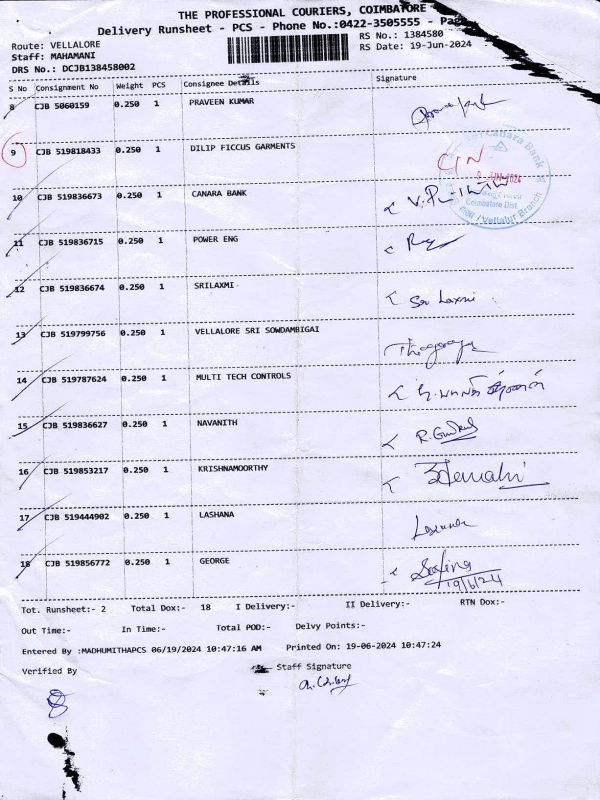 THE PROFESSIONAL COURIERS, COIMBATORE
Delivery Runsheet - PCS - Phone No.:0422-3505555 -
Route: VELLALORE
Staff: MAHAMANI
DRS No.: DCJB138458002
RS No.: 1384580
RS Date: 19-Jun-2024
S No Consignment No Weight PCS Consignee Details Signature
8 CJB 5060159 0.250 1 PRAVEEN KUMAR
9 CJB 519818433 0.250 1 DILIP FICCUS GARMENTS C/N
10 CJB 519836673 0.250 1 CANARA BANK
Coimbatore Dist
Branch
11 CJB 519836715 0.250 1 POWER ENG
12 CJB 519836674 0.250 1 SRILAXMI Sri Laxmi
13 CJB 519799756 0.250 1 VELLALORE SRI SOWDAMBIGAI
14 CJB 519787624 0.250 1 MULTI TECH CONTROLS
15 CJB 519836627 0.250 1 NAVANITH
16 CJB 519853217 0.250 1 KRISHNAMOORTHY
17 CJB 519444902 0.250 1 LASHANA
18 CJB 519856772 0.250 1 GEORGE
19/6/24
Tot. Runsheet:- 2 Total Dox:- 18 I Delivery:- II Delivery:- RTN Dox:-
Out Time:- In Time:- Total POD:- Delvy Points:-
Entered By :MADHUMITHAPCS 06/19/2024 10:47:16 AM Printed On: 19-06-2024 10:47:24
Verified By Staff Signature